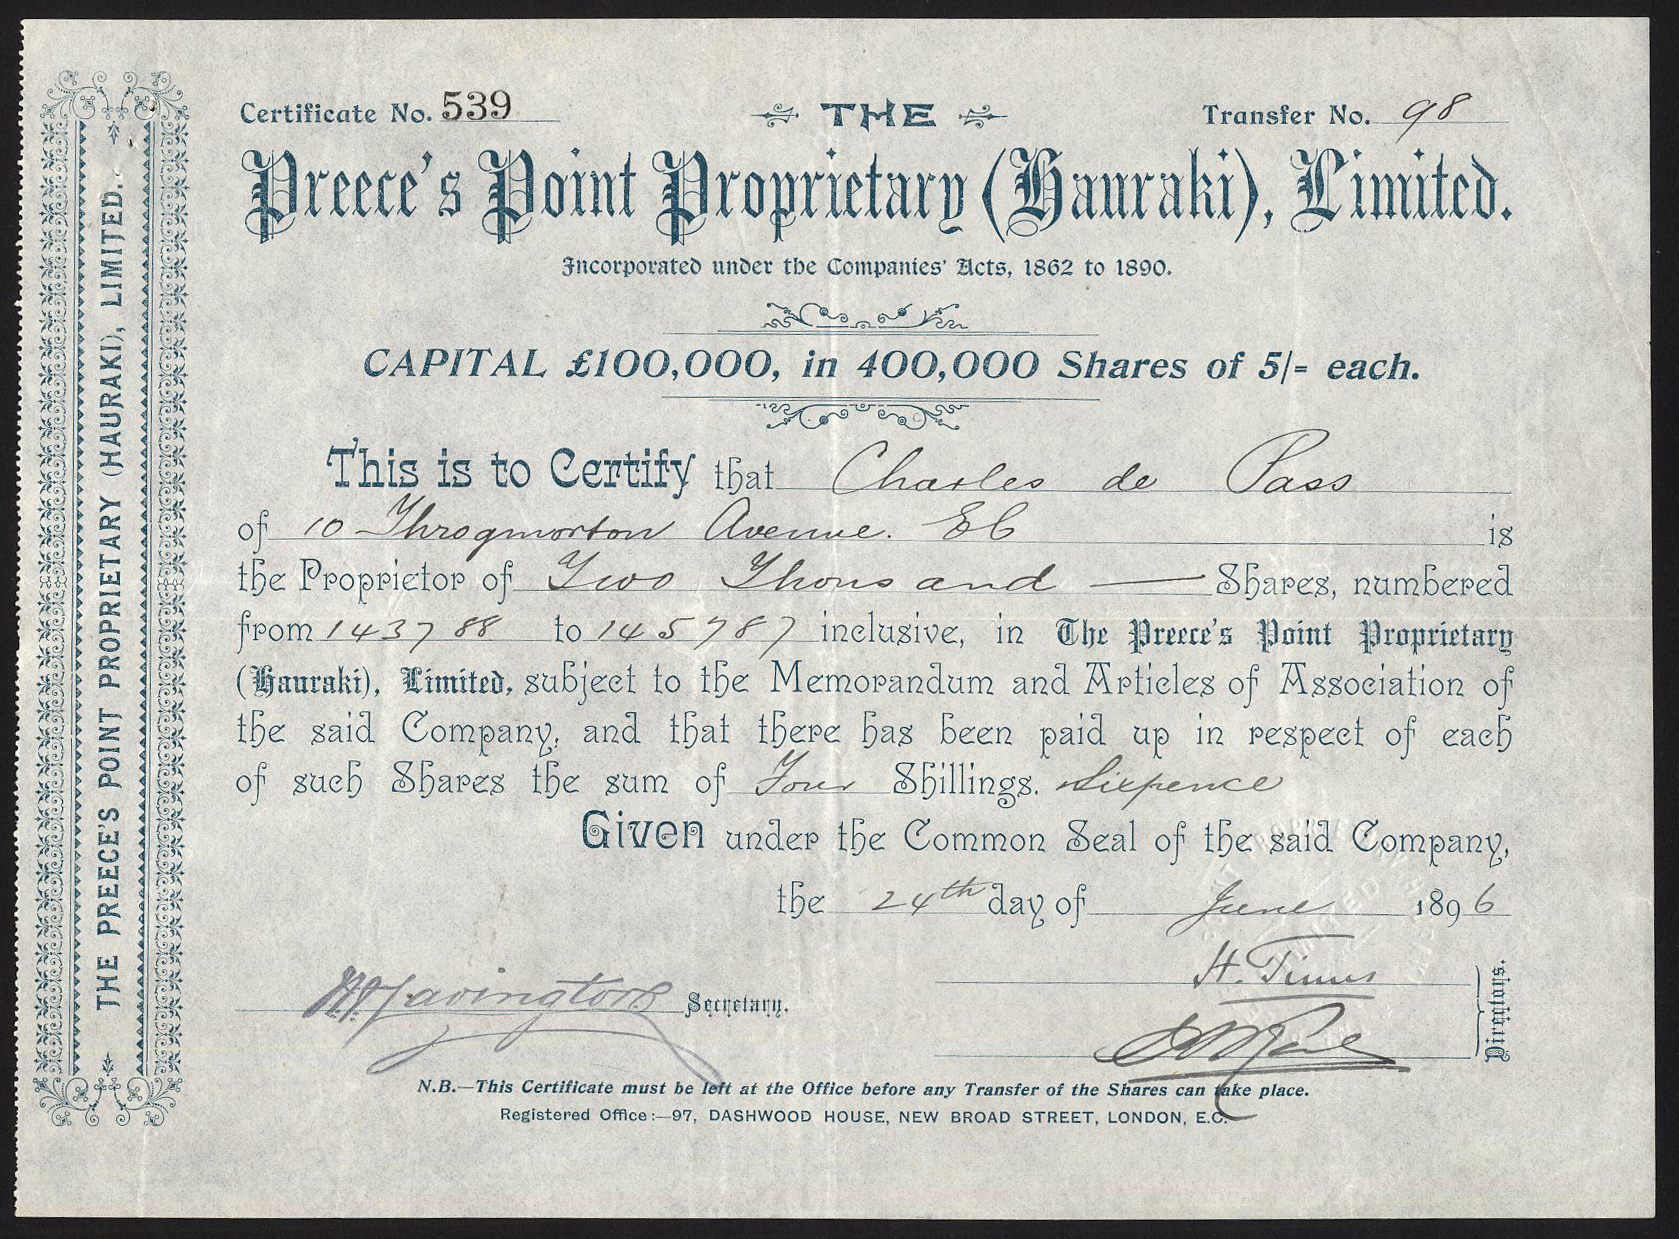 THE PREECE'S POINT PROPRIETARY (HAURAKI), LIMITED.
Certificate No. 539
THE
Transfer No. 98
Preece's Point Proprietary (Hauraki), Limited.
Incorporated under the Companies' Acts, 1862 to 1890.
CAPITAL £100,000, in 400,000 Shares of 5/= each.
This is to Certify that Charles de Pass
of 10 Throgmorton Avenue. EC is
the Proprietor of Two Thousand — Shares, numbered
from 143788 to 145787 inclusive, in The Preece's Point Proprietary
(Hauraki), Limited, subject to the Memorandum and Articles of Association of
the said Company; and that there has been paid up in respect of each
of such Shares the sum of Four Shillings. Sixpence
Given under the Common Seal of the said Company,
the 24th day of June 1896
Secretary.
Directors.
N.B.—This Certificate must be left at the Office before any Transfer of the Shares can take place.
Registered Office:—97, DASHWOOD HOUSE, NEW BROAD STREET, LONDON, E.C.